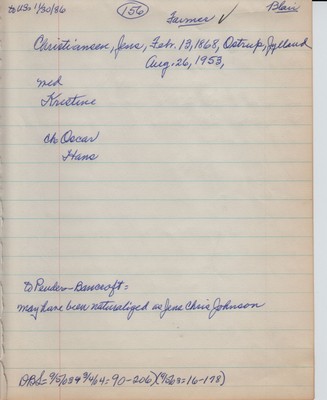 to US. 1/30/86 (156) Farmer ✓ Blair
Christiansen, Jens, Feb. 13, 1868, Ostrup, Jylland
Aug. 26, 1953,
md
Kristine
ch Oscar
Hans
to Pender-Bancroft =
may have been naturalized as Jens Chris Johnson